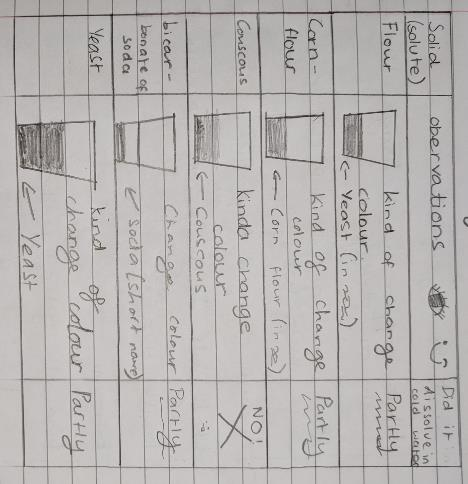 Solid
(solute)
obervations
Did it
dissolve in
cold water
Flour
kind of change
colour
← Yeast
Partly
Corn-
flour
Kind of change
colour
← Corn flour
Partly
Couscous
kinda change
colour
← Couscous
NO!
bicar-
bonate of
soda
Change colour
← soda (short name)
Partly
Yeast
kind of
change of colour
← Yeast
Partly